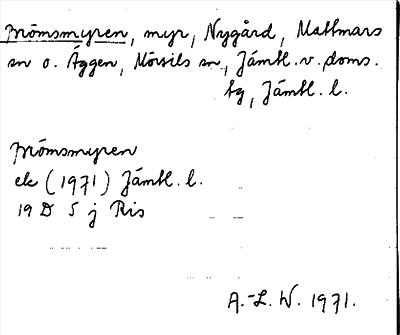 Prömsmyren, myr, Nygård, Mattmars
sn o. Äggen, Mörsils sn, Jämtl. v. doms.
tg, Jämtl. l.
Prömsmyren
ek (1971) Jämtl. l.
19 D 5 j Ris
A.-L. W. 1971.